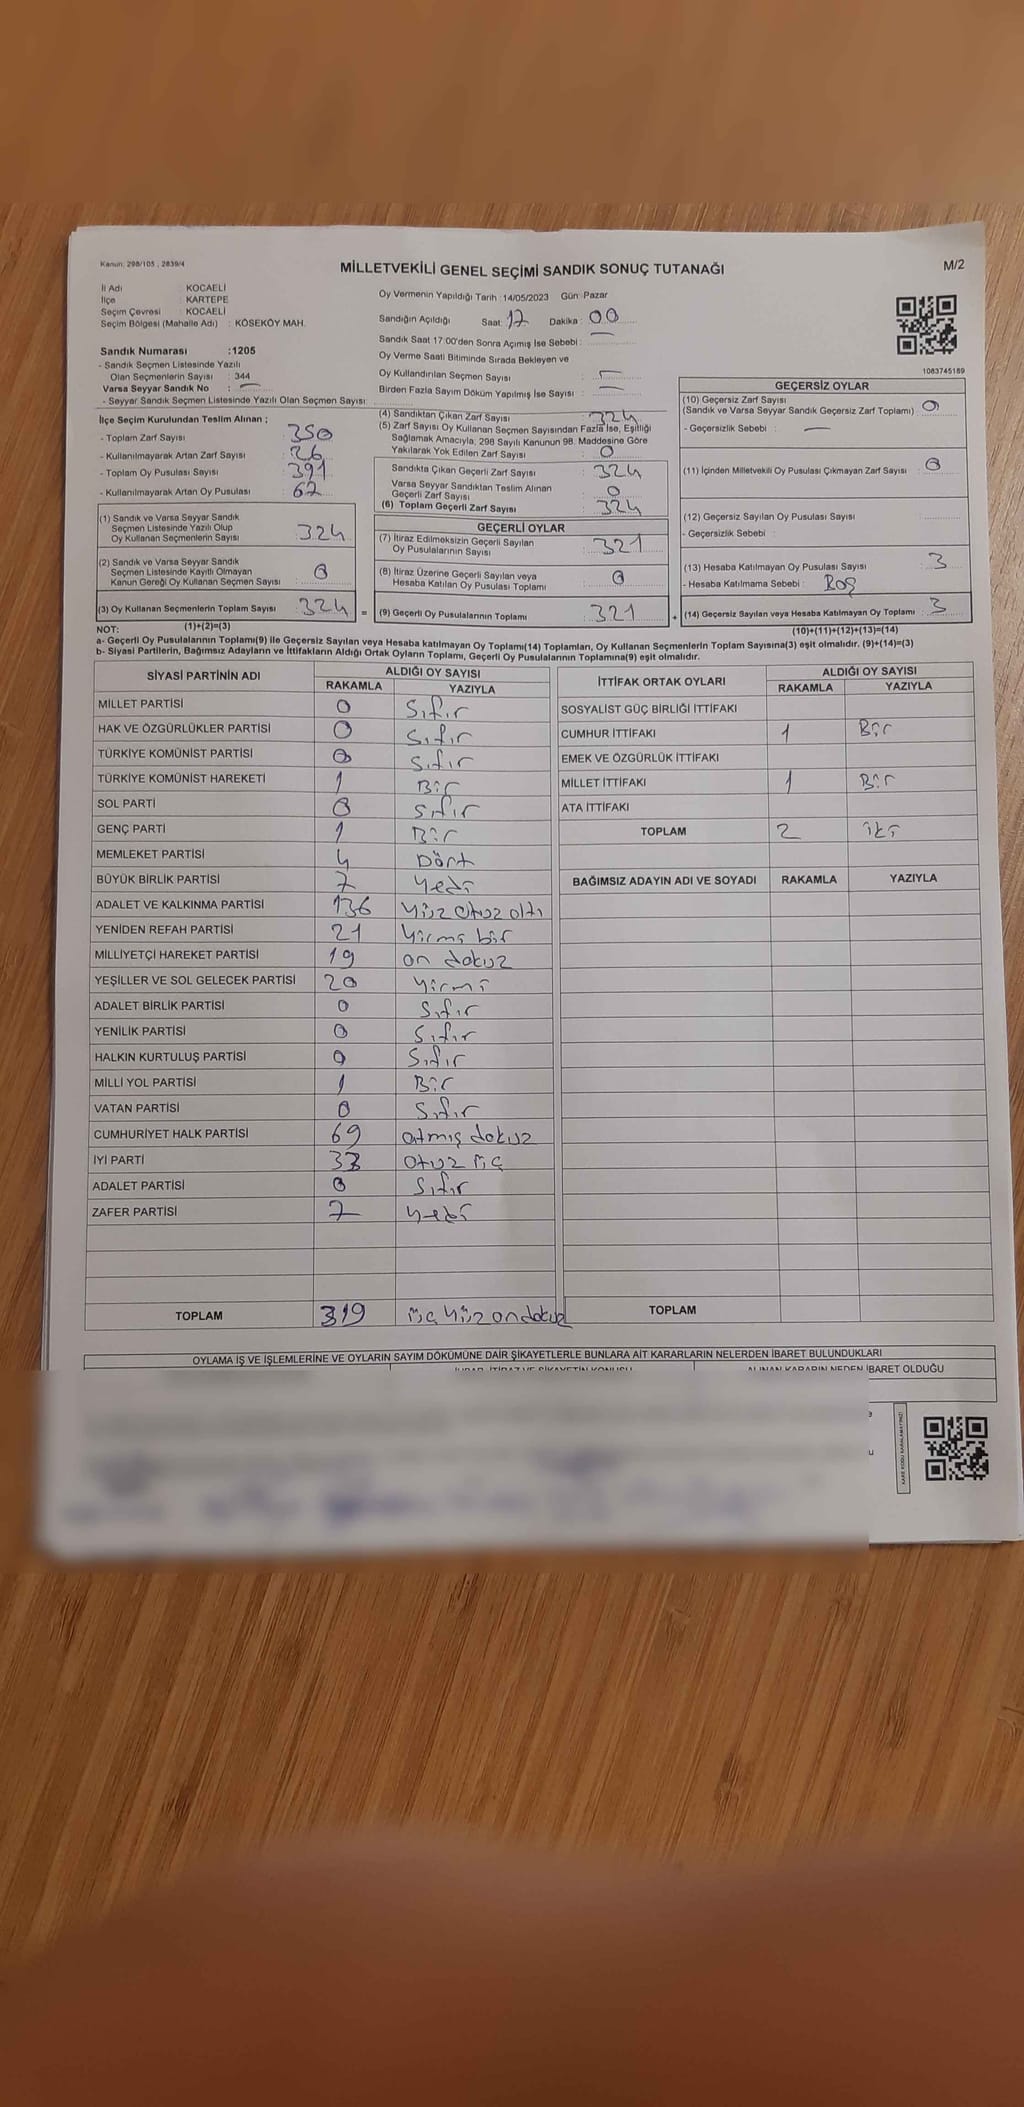 Kanun: 298/105 , 2839/4
MİLLETVEKİLİ GENEL SEÇİMİ SANDIK SONUÇ TUTANAĞI
M/2
İl Adı : KOCAELİ
İlçe : KARTEPE
Seçim Çevresi : KOCAELİ
Seçim Bölgesi (Mahalle Adı) : KÖSEKÖY MAH.
Oy Vermenin Yapıldığı Tarih :14/05/2023 Gün :Pazar
Sandığın Açıldığı Saat: 17 Dakika : 00
Sandık Saat 17:00'den Sonra Açımış İse Sebebi :
Oy Verme Saati Bitiminde Sırada Bekleyen ve
Oy Kullandırılan Seçmen Sayısı :
Birden Fazla Sayım Döküm Yapılmış İse Sayısı : —
Sandık Numarası :1205
- Sandık Seçmen Listesinde Yazılı
Olan Seçmenlerin Sayısı : 344
Varsa Seyyar Sandık No : —
- Seyyar Sandık Seçmen Listesinde Yazılı Olan Seçmen Sayısı:
1083745189
İlçe Seçim Kurulundan Teslim Alınan ;
- Toplam Zarf Sayısı : 350
- Kullanılmayarak Artan Zarf Sayısı : 26
- Toplam Oy Pusulası Sayısı : 391
- Kullanılmayarak Artan Oy Pusulası : 67
(1) Sandık ve Varsa Seyyar Sandık
Seçmen Listesinde Yazılı Olup
Oy Kullanan Seçmenlerin Sayısı : 324
(2) Sandık ve Varsa Seyyar Sandık
Seçmen Listesinde Kayıtlı Olmayan
Kanun Gereği Oy Kullanan Seçmen Sayısı : 0
(3) Oy Kullanan Seçmenlerin Toplam Sayısı : 324 =
(4) Sandıktan Çıkan Zarf Sayısı : 324
(5) Zarf Sayısı Oy Kullanan Seçmen Sayısından Fazla İse, Eşitliği
Sağlamak Amacıyla, 298 Sayılı Kanunun 98. Maddesine Göre
Yakılarak Yok Edilen Zarf Sayısı : 0
Sandıkta Çıkan Geçerli Zarf Sayısı : 324
Varsa Seyyar Sandıktan Teslim Alınan
Geçerli Zarf Sayısı : 0
(6) Toplam Geçerli Zarf Sayısı : 324
GEÇERLİ OYLAR
(7) İtiraz Edilmeksizin Geçerli Sayılan
Oy Pusulalarının Sayısı : 321
(8) İtiraz Üzerine Geçerli Sayılan veya
Hesaba Katılan Oy Pusulası Toplamı : 0
(9) Geçerli Oy Pusulalarının Toplamı : 321 +
GEÇERSİZ OYLAR
(10) Geçersiz Zarf Sayısı
(Sandık ve Varsa Seyyar Sandık Geçersiz Zarf Toplamı) : 0
- Geçersizlik Sebebi : —
(11) İçinden Milletvekili Oy Pusulası Çıkmayan Zarf Sayısı : 0
(12) Geçersiz Sayılan Oy Pusulası Sayısı :
- Geçersizlik Sebebi :
(13) Hesaba Katılmayan Oy Pusulası Sayısı : 3
- Hesaba Katılmama Sebebi : Boş
(14) Geçersiz Sayılan veya Hesaba Katılmayan Oy Toplamı : 3
NOT: (1)+(2)=(3)
(10)+(11)+(12)+(13)=(14)
a- Geçerli Oy Pusulalarının Toplamı(9) ile Geçersiz Sayılan veya Hesaba katılmayan Oy Toplamı(14) Toplamları, Oy Kullanan Seçmenlerin Toplam Sayısına(3) eşit olmalıdır. (9)+(14)=(3)
b- Siyasi Partilerin, Bağımsız Adayların ve İttifakların Aldığı Ortak Oyların Toplamı, Geçerli Oy Pusulalarının Toplamına(9) eşit olmalıdır.
SİYASİ PARTİNİN ADI
ALDIĞI OY SAYISI
RAKAMLA YAZIYLA
MİLLET PARTİSİ 0 Sıfır
HAK VE ÖZGÜRLÜKLER PARTİSİ 0 Sıfır
TÜRKİYE KOMÜNİST PARTİSİ 0 Sıfır
TÜRKİYE KOMÜNİST HAREKETİ 1 Bir
SOL PARTİ 0 Sıfır
GENÇ PARTİ 1 Bir
MEMLEKET PARTİSİ 4 Dört
BÜYÜK BİRLİK PARTİSİ 7 Yedi
ADALET VE KALKINMA PARTİSİ 136 Yüz otuz altı
YENİDEN REFAH PARTİSİ 21 Yirmi bir
MİLLİYETÇİ HAREKET PARTİSİ 19 on dokuz
YEŞİLLER VE SOL GELECEK PARTİSİ 20 Yirmi
ADALET BİRLİK PARTİSİ 0 Sıfır
YENİLİK PARTİSİ 0 Sıfır
HALKIN KURTULUŞ PARTİSİ 0 Sıfır
MİLLİ YOL PARTİSİ 1 Bir
VATAN PARTİSİ 0 Sıfır
CUMHURİYET HALK PARTİSİ 69 atmış dokuz
İYİ PARTİ 33 otuz üç
ADALET PARTİSİ 0 Sıfır
ZAFER PARTİSİ 7 Yedi
TOPLAM 319 üç yüz on dokuz
İTTİFAK ORTAK OYLARI
ALDIĞI OY SAYISI
RAKAMLA YAZIYLA
SOSYALİST GÜÇ BİRLİĞİ İTTİFAKI
CUMHUR İTTİFAKI 1 Bir
EMEK VE ÖZGÜRLÜK İTTİFAKI
MİLLET İTTİFAKI 1 Bir
ATA İTTİFAKI
TOPLAM 2 iki
BAĞIMSIZ ADAYIN ADI VE SOYADI RAKAMLA YAZIYLA
TOPLAM
OYLAMA İŞ VE İŞLEMLERİNE VE OYLARIN SAYIM DÖKÜMÜNE DAİR ŞİKAYETLERLE BUNLARA AİT KARARLARIN NELERDEN İBARET BULUNDUKLARI
ALINAN KARARIN NEDEN İBARET OLDUĞU
KARE KODU KARALAMAYINIZ!